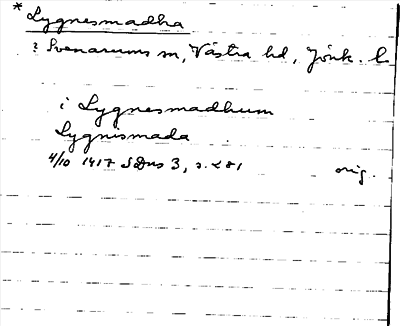 * Lygnesmadha
? Svenarums sn, Västra hd, Jönk. l.
i Lygnesmadhum
Lygnismada
4/10 1417 SDns 3, s. 281 orig.